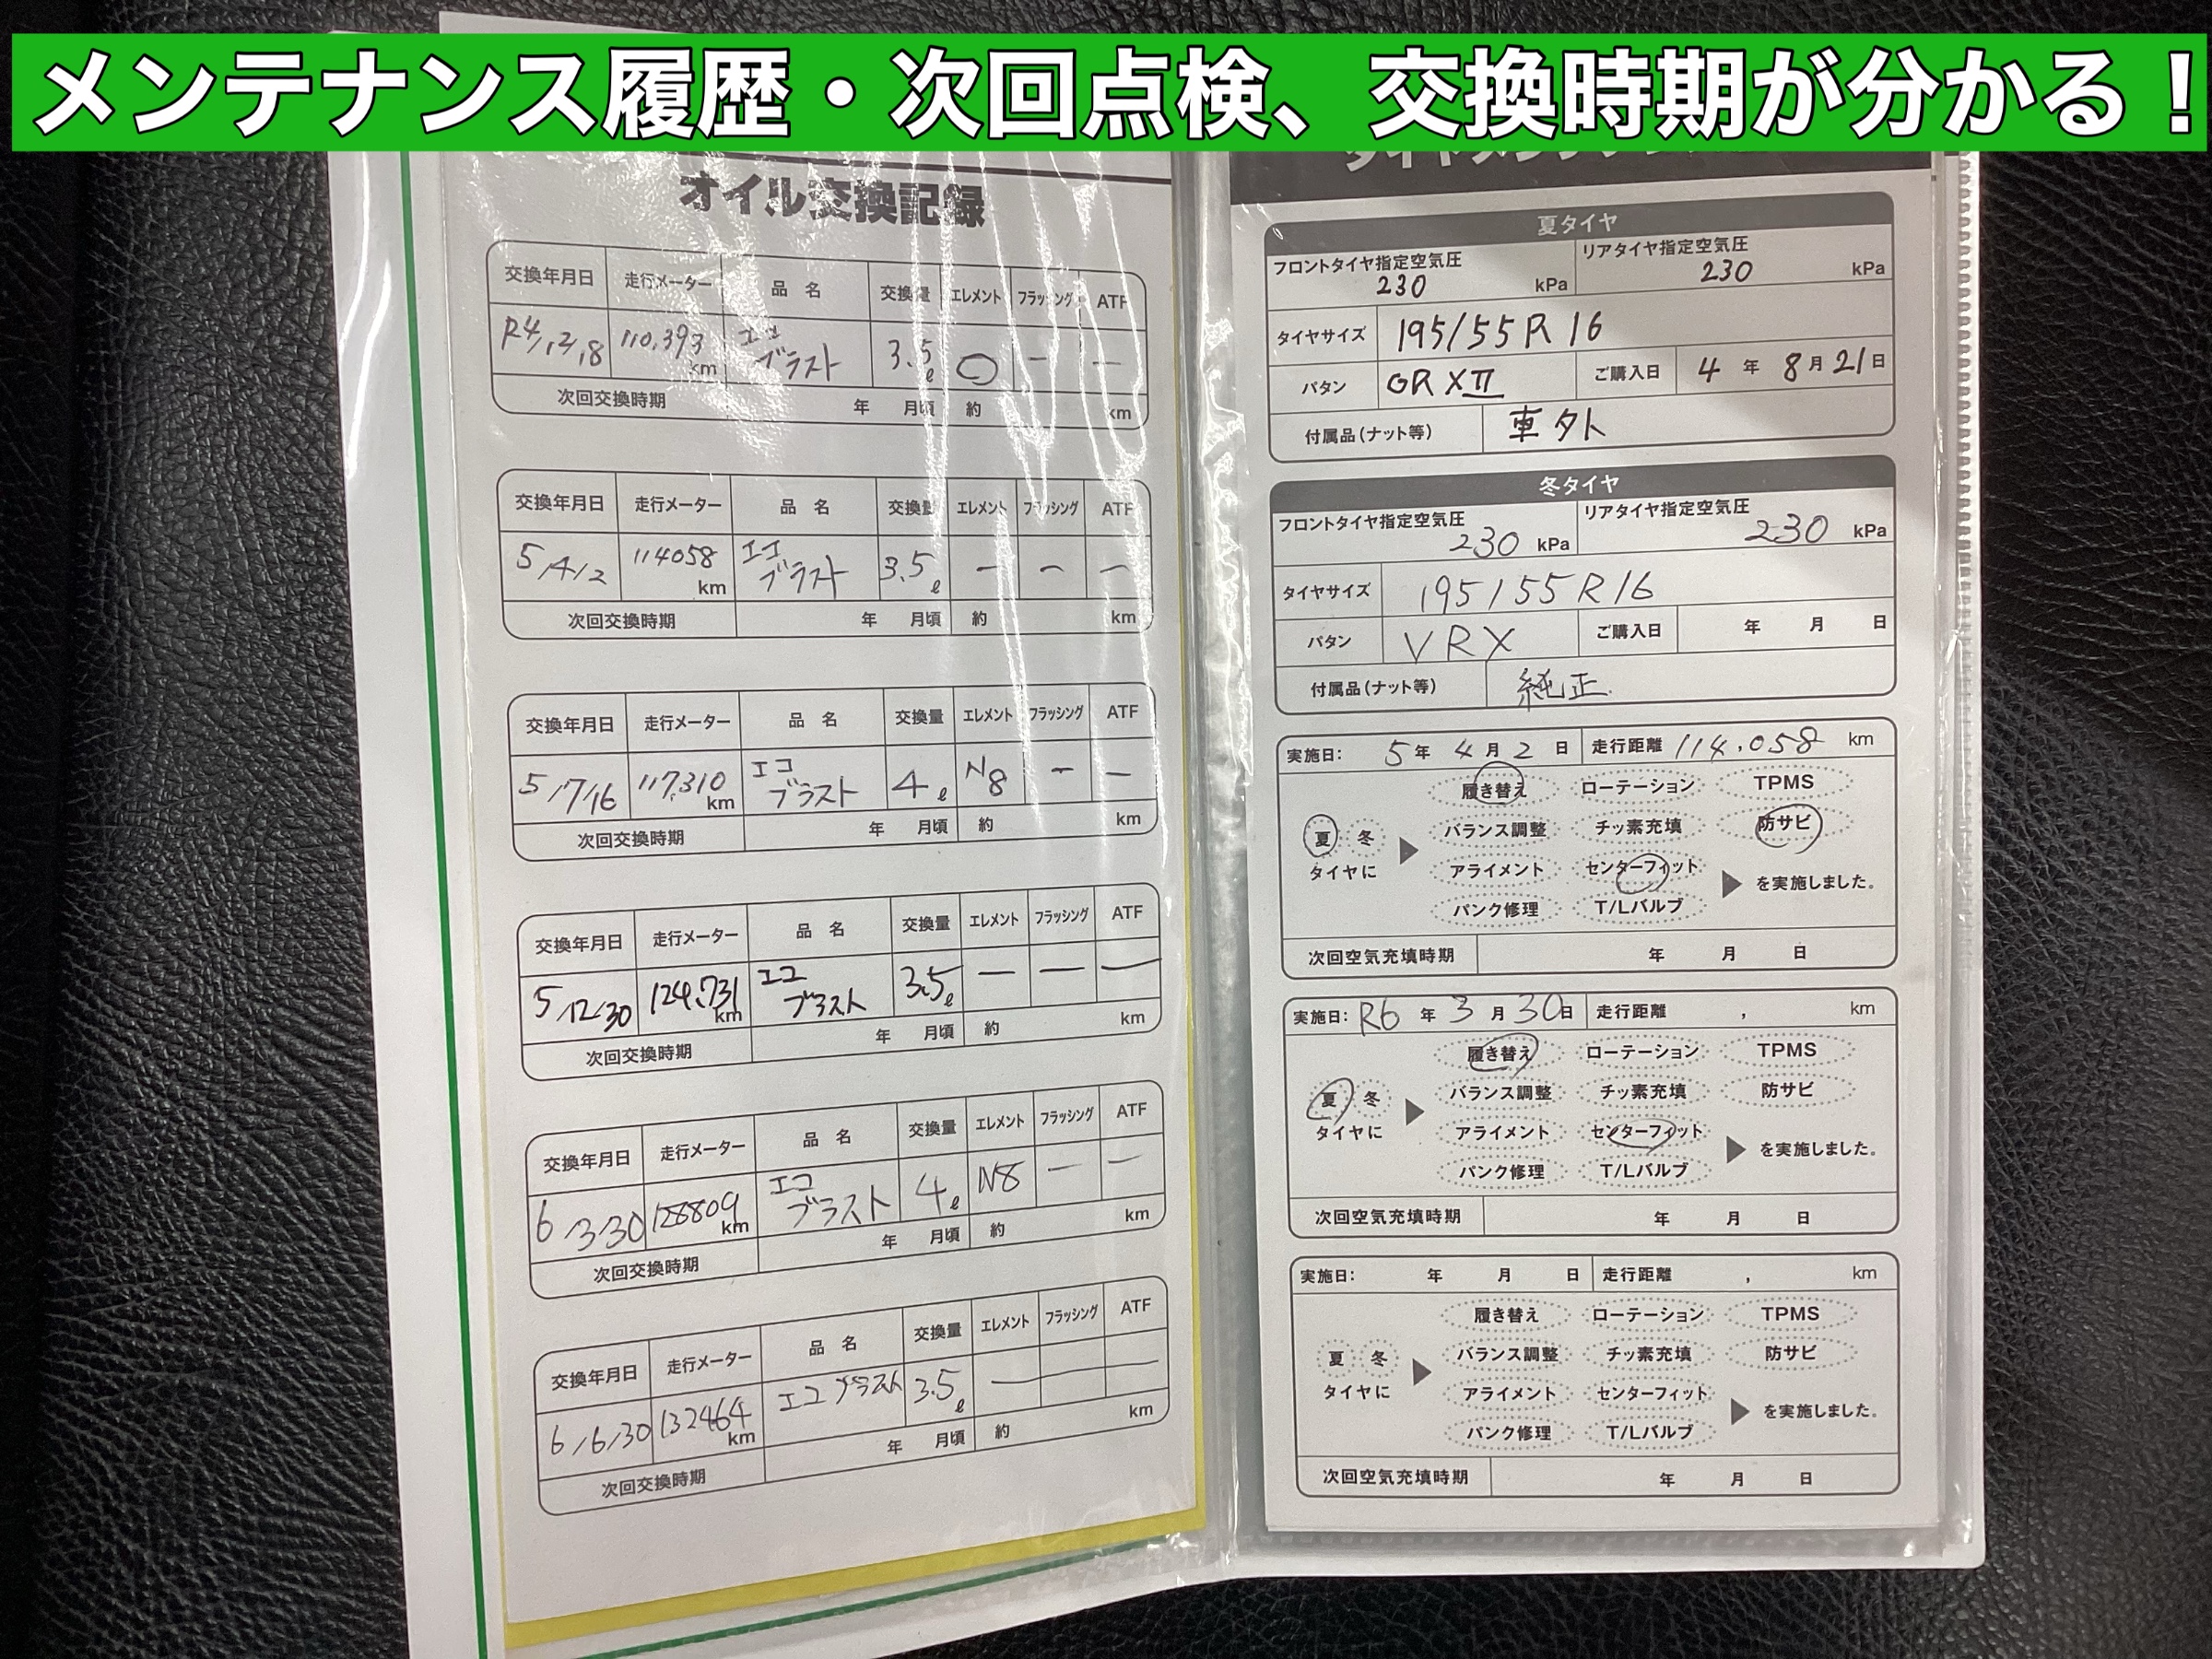 メンテナンス履歴・次回点検、交換時期が分かる！
オイル交換記録
交換年月日 走行メーター 品名 交換量 エレメント フラッシング ATF
R4/12/18 110,393 km エコブラスト 3.5ℓ ○ − −
次回交換時期 年 月頃 約 km
交換年月日 走行メーター 品名 交換量 エレメント フラッシング ATF
5/4/2 114058 km エコブラスト 3.5ℓ − − −
次回交換時期 年 月頃 約 km
交換年月日 走行メーター 品名 交換量 エレメント フラッシング ATF
5/7/16 117,310 km エコブラスト 4ℓ N8 − −
次回交換時期 年 月頃 約 km
交換年月日 走行メーター 品名 交換量 エレメント フラッシング ATF
5/12/30 124,731 km エコブラスト 3.5ℓ − − −
次回交換時期 年 月頃 約 km
交換年月日 走行メーター 品名 交換量 エレメント フラッシング ATF
6/3/30 128809 km エコブラスト 4ℓ N8 − −
次回交換時期 年 月頃 約 km
交換年月日 走行メーター 品名 交換量 エレメント フラッシング ATF
6/6/30 132464 km エコブラスト 3.5ℓ −
次回交換時期 年 月頃 約 km
夏タイヤ
フロントタイヤ指定空気圧 230 kPa リアタイヤ指定空気圧 230 kPa
タイヤサイズ 195/55R16
パタン GRXⅡ ご購入日 4年 8月 21日
付属品(ナット等) 車外
冬タイヤ
フロントタイヤ指定空気圧 230 kPa リアタイヤ指定空気圧 230 kPa
タイヤサイズ 195/55R16
パタン VRX ご購入日 年 月 日
付属品(ナット等) 純正
実施日: 5年 4月 2日 走行距離 114,058 km
履き替え ローテーション TPMS
夏 冬 バランス調整 チッ素充填 防サビ
タイヤに アライメント センターフィット を実施しました。
パンク修理 T/Lバルブ
次回空気充填時期 年 月 日
実施日: R6年 3月 30日 走行距離 , km
履き替え ローテーション TPMS
夏 冬 バランス調整 チッ素充填 防サビ
タイヤに アライメント センターフィット を実施しました。
パンク修理 T/Lバルブ
次回空気充填時期 年 月 日
実施日: 年 月 日 走行距離 , km
履き替え ローテーション TPMS
夏 冬 バランス調整 チッ素充填 防サビ
タイヤに アライメント センターフィット を実施しました。
パンク修理 T/Lバルブ
次回空気充填時期 年 月 日